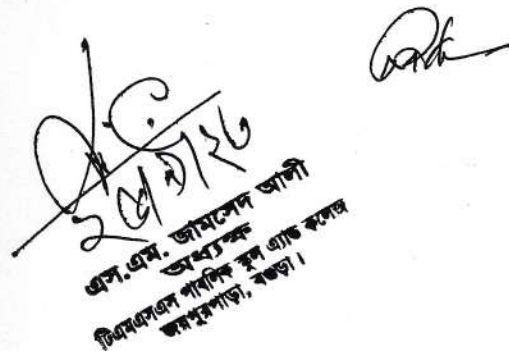 এস.এম. জামসেদ আলী
অধ্যক্ষ
টিএমএসএস পাবলিক স্কুল এ্যান্ড কলেজ
জয়পুরপাড়া, বগুড়া।